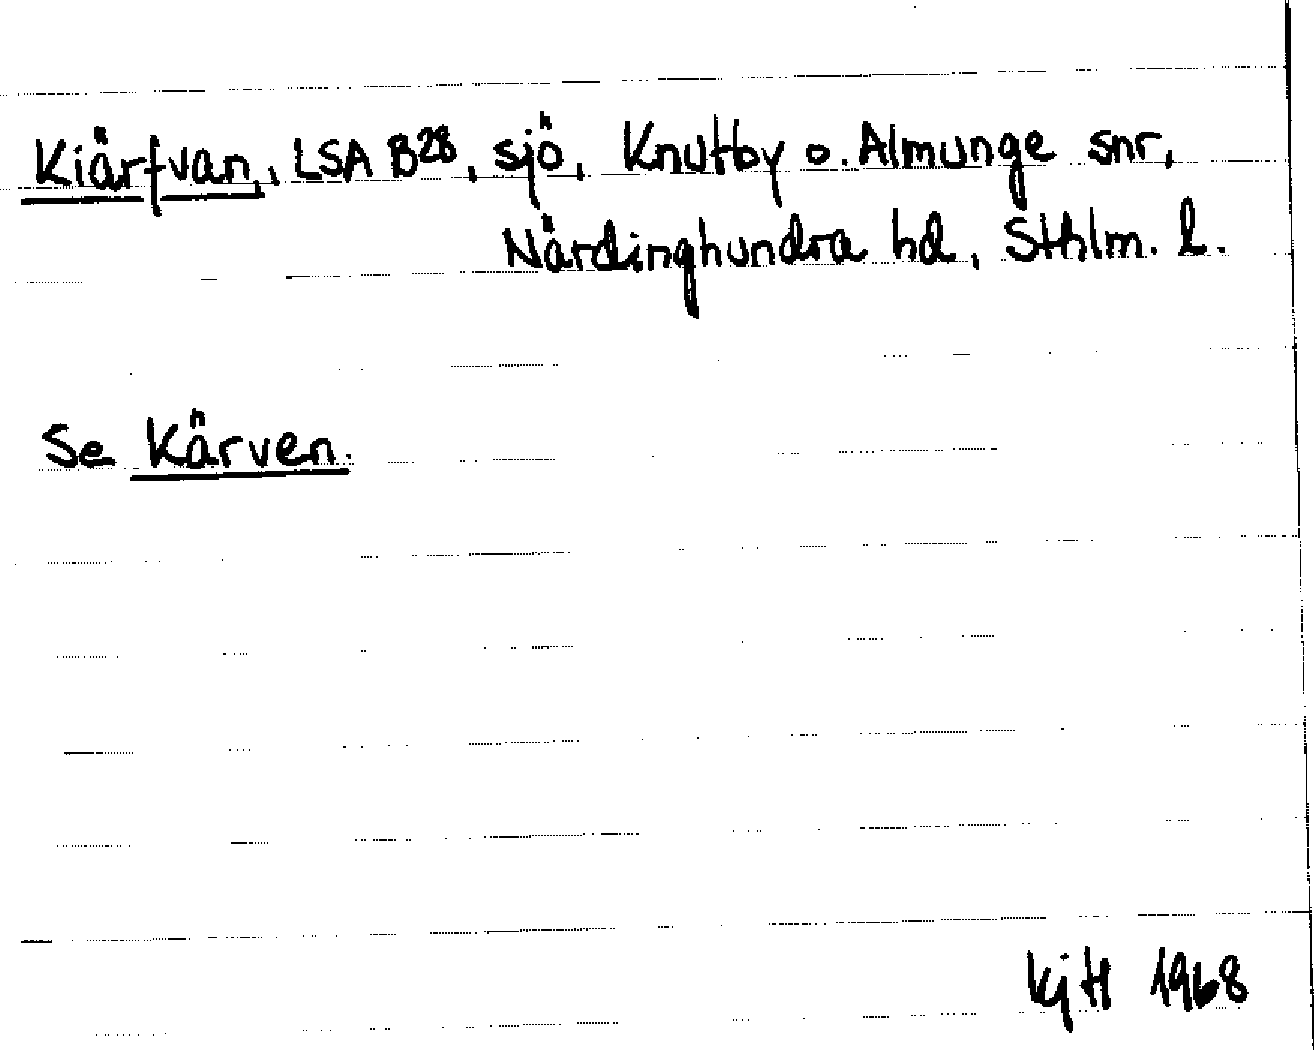 Kiärfvan, LSA B28, sjö, Knutby o. Almunge snr,
Närdinghundra hd, Sthlm. l.
Se Kärven.
KjH 1968